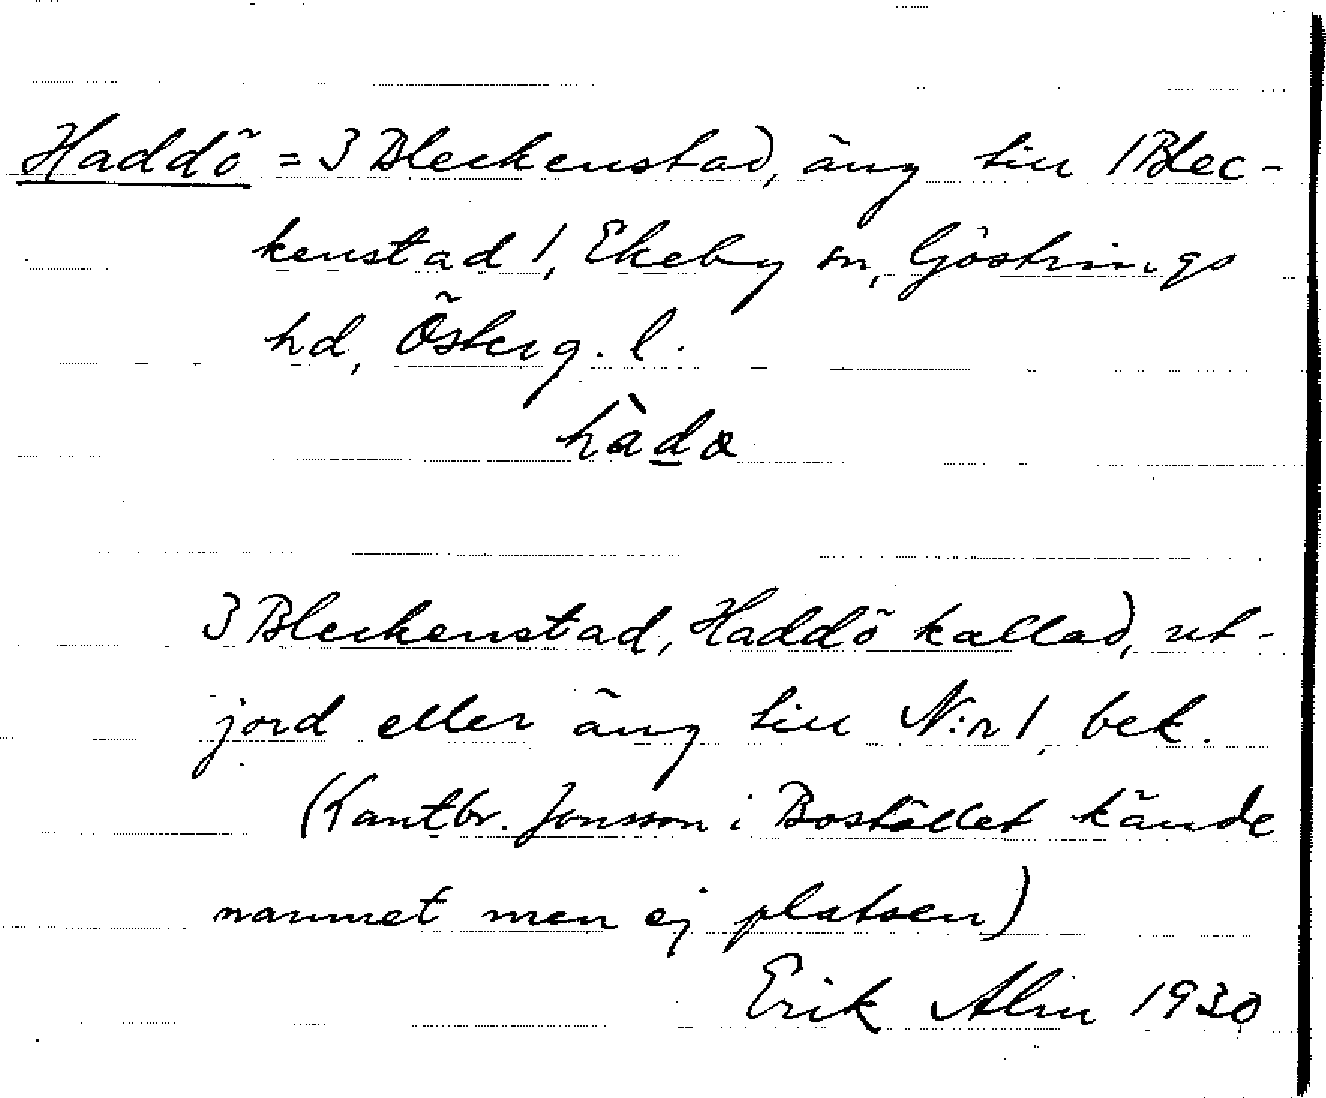 Haddö = 3 Bleckenstad, äng till 1 Blec-
kenstad 1, Ekeby sn, Göstrings
hd, Österg. l.
hàdα
3 Bleckenstad, Haddö kallad, ut-
jord eller äng till N:r 1, bek.
(Lantbr. Jonsson i Bostället kände
namnet men ej platsen)
Erik Alm 1930